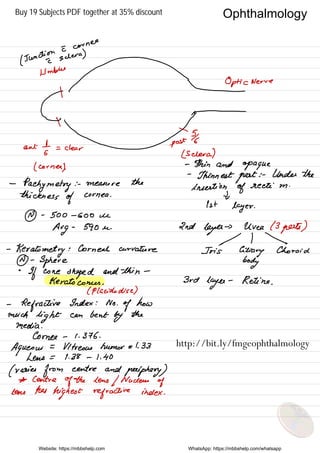 Buy 19 Subjects PDF together at 35% discount
Ophthalmology
(Junction c̄ cornea
c̄ sclera)
Limbus
Optic Nerve
ant 1/6 = clear
(cornea)
post 5/6
(Sclera)
- Thin and opaque
- Thinnest part :- Under the
insertion of recti m.
↓
1st layer.
- Pachymetry :- measure the
thickness of cornea.
(N) - 500 - 600 u
Avg - 540 u.
2nd layer → Uvea (3 parts)
Iris Ciliary body Choroid
3rd layer - Retina.
- Keratometry : Corneal curvature
(N) - Sphere
• If cone shaped and thin -
Keratoconus.
(Placido disc)
- Refractive Index : No. of how
much light can bent by the
media.
Cornea - 1.376.
Aqueous = Vitreous humor = 1.33
Lens = 1.38 - 1.40
(varies from centre and periphery)
* Centre of the lens / Nucleus of
lens has highest refractive index.
http://bit.ly/fmgeophthalmology
Website: https://mbbshelp.com
WhatsApp: https://mbbshelp.com/whatsapp